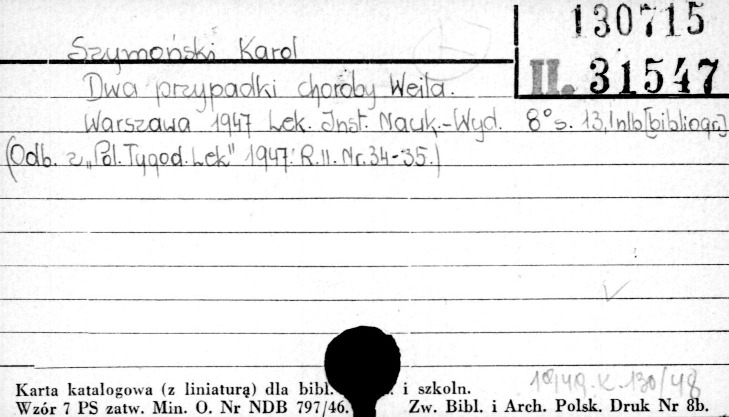 130715
Szymoński Karol
II. 31547
Dwa przypadki choroby Weila.
Warszawa 1947 Lek. Inst. Nauk.-Wyd. 8° s. 13, 1 nlb [bibliogr.]
(Odb. z „Pol. Tygod. Lek" 1947. R. II. Nr. 34-35.)
1949.K.130/48
Karta katalogowa (z liniaturą) dla bibl. i szkoln.
Wzór 7 PS zatw. Min. O. Nr NDB 797/46. Zw. Bibl. i Arch. Polsk. Druk Nr 8b.